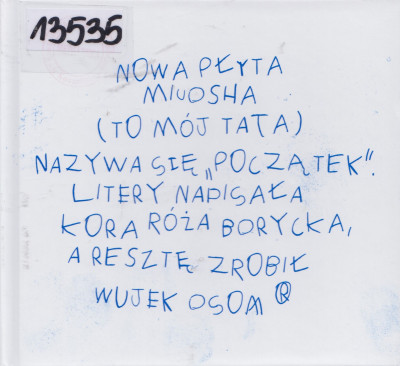 13535
NOWA PŁYTA
MIUOSHA
(TO MÓJ TATA)
NAZYWA SIĘ „POCZĄTEK".
LITERY NAPISAŁA
KORA RÓŻA BORYCKA,
A RESZTĘ ZROBIŁ
WUJEK OSOM ®